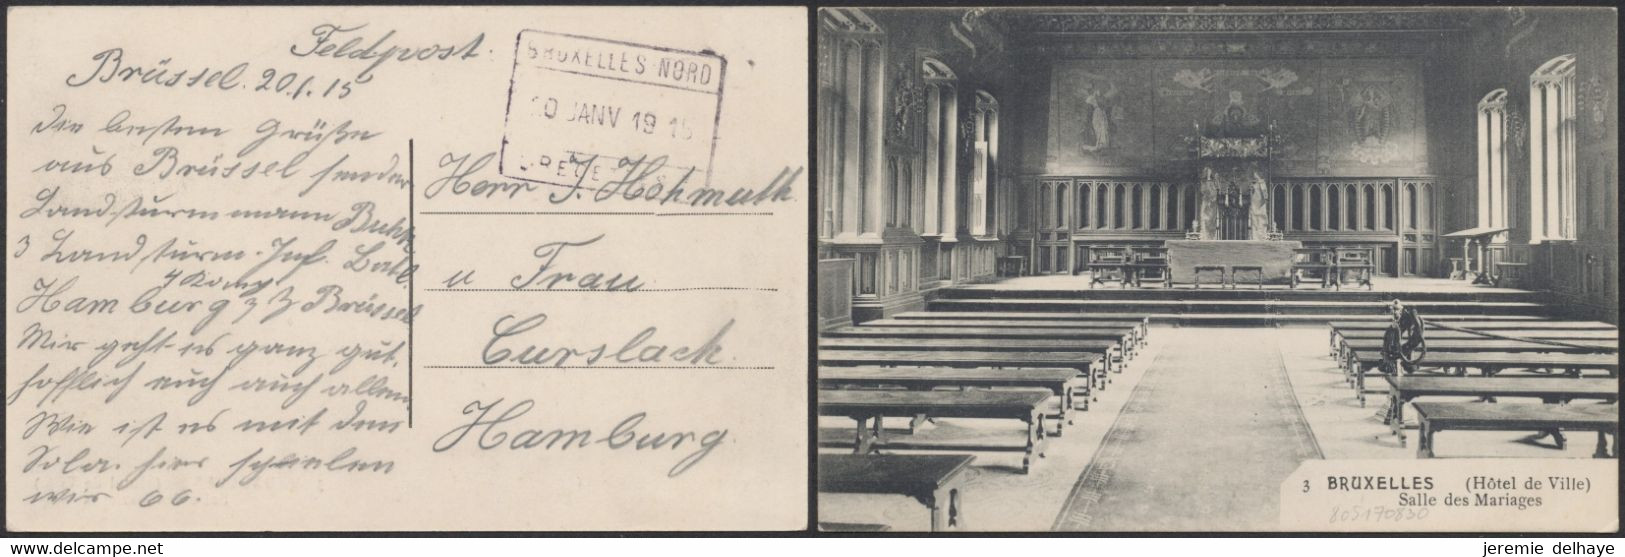 Feldpost.
Brüssel. 20.1.15
die besten Grüße
aus Brüssel sendet
Landsturmmann
3 Landsturm. Inf. Batl
4 Komp
Hamburg z Z Brüssel
Wir geht es ganz gut.
hofflich euch auch allen
Wie ist es mit den
hier spielen
wir 66.
BRUXELLES-NORD
20 JANV 1915
Herr J. Hohmuth
u Frau
Curslack.
Hamburg
3 BRUXELLES (Hôtel de Ville)
Salle des Mariages
805170830
jeremie delhaye